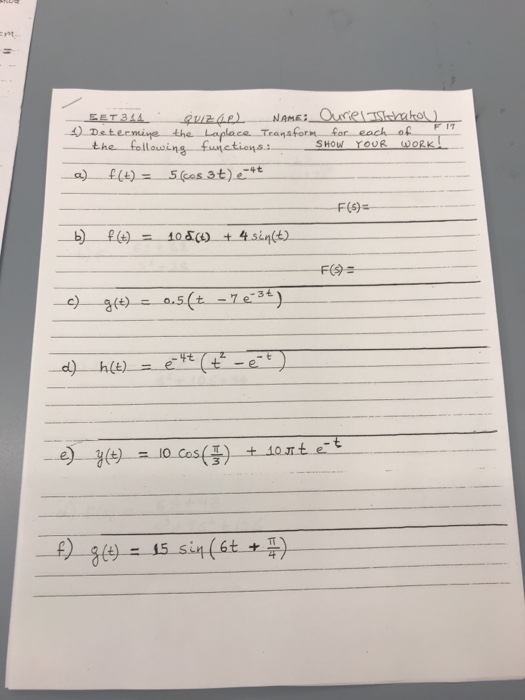 EET 311 QUIZ (1P) NAME: Ouriel
F 17
1) Determine the Laplace Transform for each of
the following functions: SHOW YOUR WORK!
a) f(t) = 5(cos 3t) e^-4t
F(s) =
b) f(t) = 10 δ(t) + 4 sin(t)
F(s) =
c) g(t) = 0.5(t - 7 e^-3t)
d) h(t) = e^-4t (t^2 - e^-t)
e) y(t) = 10 cos(π/3) + 10 π t e^-t
f) g(t) = 15 sin(6t + π/4)